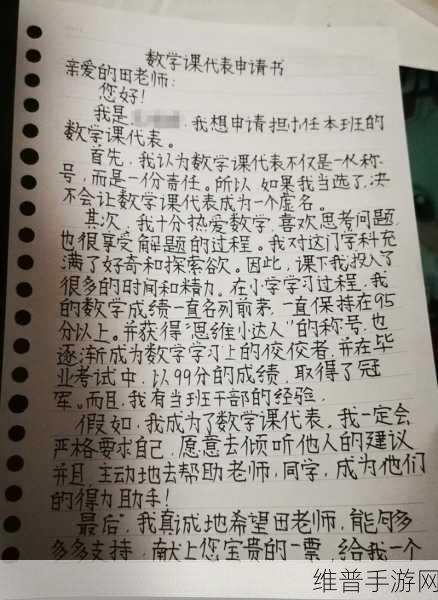 数学课代表申请书
亲爱的田老师：
您好！
我是 ，我想申请担任本班的
数学课代表。
首先，我认为数学课代表不仅是一个称
号，而是一份责任。所以 如果我当选了，决
不会让数学课代表成为一个虚名。
其次，我十分热爱数学，喜欢思考问题，
也很享受解题的过程。我对这门学科充
满了好奇和探索欲。因此，课下我投入了
很多的时间和精力。在小学学习过程，我
的数学成绩一直名列前茅，一直保持在95
分以上。并获得“思维小达人”的称号，也
逐渐成为数学学习上的佼佼者，并在毕
业考试中，以99分的成绩，取得了冠
军。而且，我有当班干部的经验，
假如，我成为了数学课代表，我一定会
严格要求自己，愿意去倾听他人的建议
并且，主动地去帮助老师，同学，成为他们
的得力助手！
最后，我真诚地希望田老师，能够多
多多支持，献上您宝贵的一票，给我一个
维普手游网